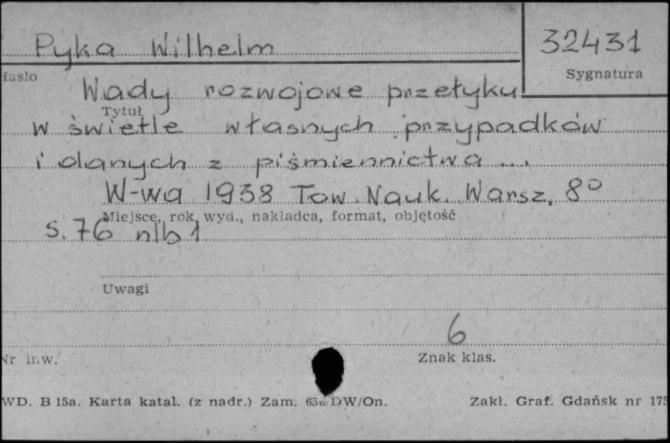 Pyka Wilhelm
32431
Hasło
Sygnatura
Wady rozwojowe przełyku
Tytuł
w świetle własnych przypadków
i danych z piśmiennictwa ...
W-wa 1938 Tow. Nauk. Warsz. 8°
Miejsce, rok wyd., nakładca, format, objętość
s. 76 nlb 1
Uwagi
6
Nr inw.
Znak klas.
WD. B 15a. Karta katal. (z nadr.) Zam. DW/On.
Zakł. Graf. Gdańsk nr 175